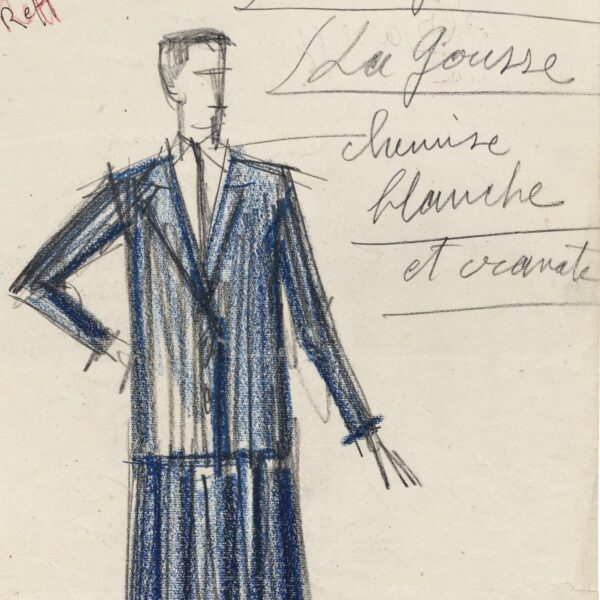 La Gousse
chemise
blanche
et cravate